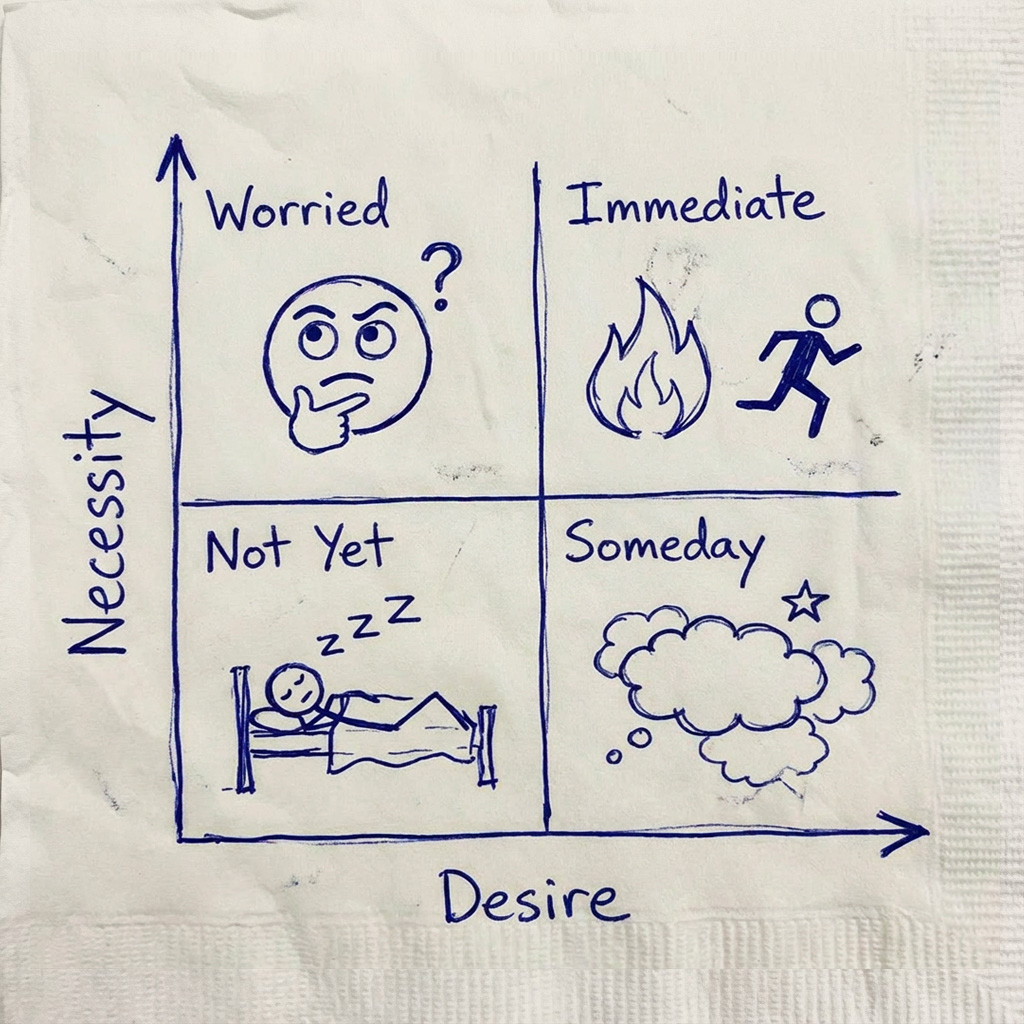 Worried
?
Immediate
Necessity
Not Yet
z z z
Someday
Desire